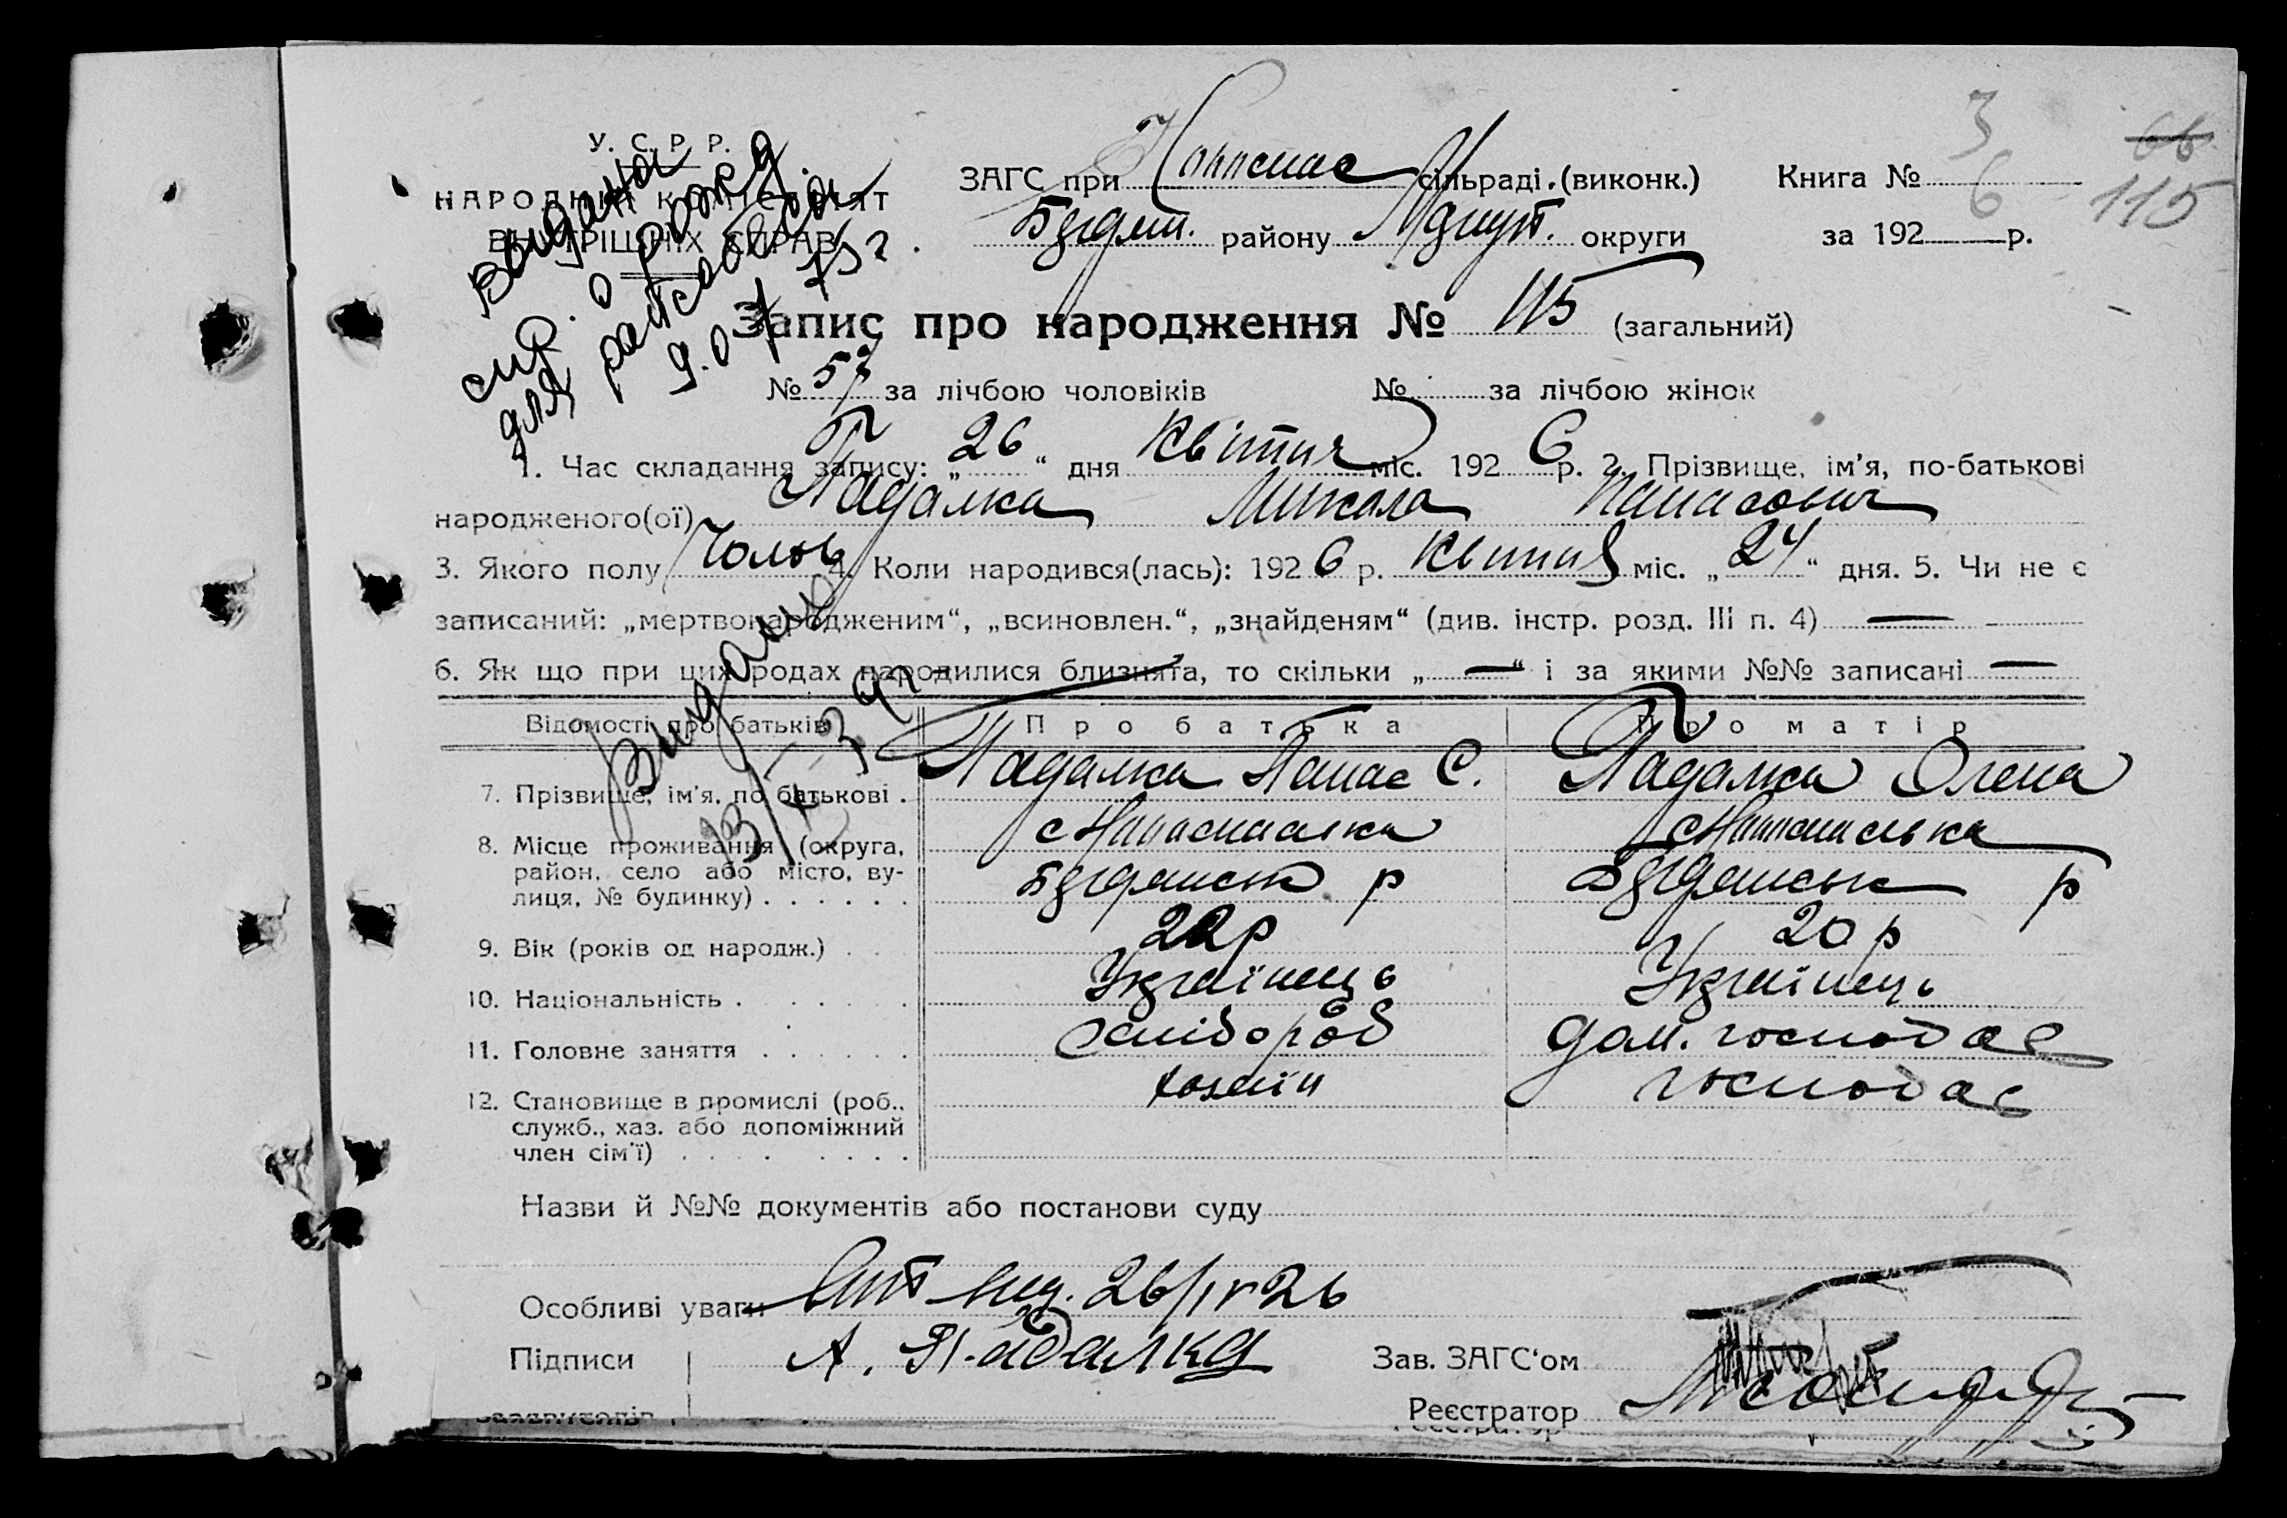 У. С. Р. Р.
НАРОДНИЙ КОМІСАРІЯТ
ВНУТРІШНІХ СПРАВ
Видана
о рожд.
для
ЗАГС при сільраді (виконк.)
району округи
Книга № 3
за 192 6 р.
66
115
Запис про народження № 115 (загальний)
№ 57 за лічбою чоловіків № за лічбою жінок
1. Час складання запису: „ 26 “ дня Квітня міс. 192 6 р. 2. Прізвище, ім'я, по-батькові
народженого(ої) Падалка Микола Панасович
3. Якого полу Чолов 4. Коли народився(лась): 192 6 р. Квітня міс. „ 24 “ дня. 5. Чи не є
записаний: „мертвонародженим“, „всиновлен.“, „знайденям“ (див. інстр. розд. III п. 4) —
6. Як що при цих родах народилися близнята, то скільки „ — “ і за якими №№ записані —
Видано
Відомості про батьків Про батька Про матір
7. Прізвище, ім'я, по батькові . Падалка Панас С. Падалка Олена
8. Місце проживання (округа,
район, село або місто, ву-
лиця, № будинку) . . . . . . р р
9. Вік (років од народж.) . . 22р 20 р
10. Національність . . . . . Українець Українець
11. Головне заняття . . . . . . Хлібороб дом. господар
12. Становище в промислі (роб.,
служб., хаз. або допоміжний
член сім'ї) . . . . . . . . хозяїн господар
Назви й №№ документів або постанови суду
Особливі уваги 26/IV 26
Підписи А. Падалка Зав. ЗАГС'ом
Реєстратор